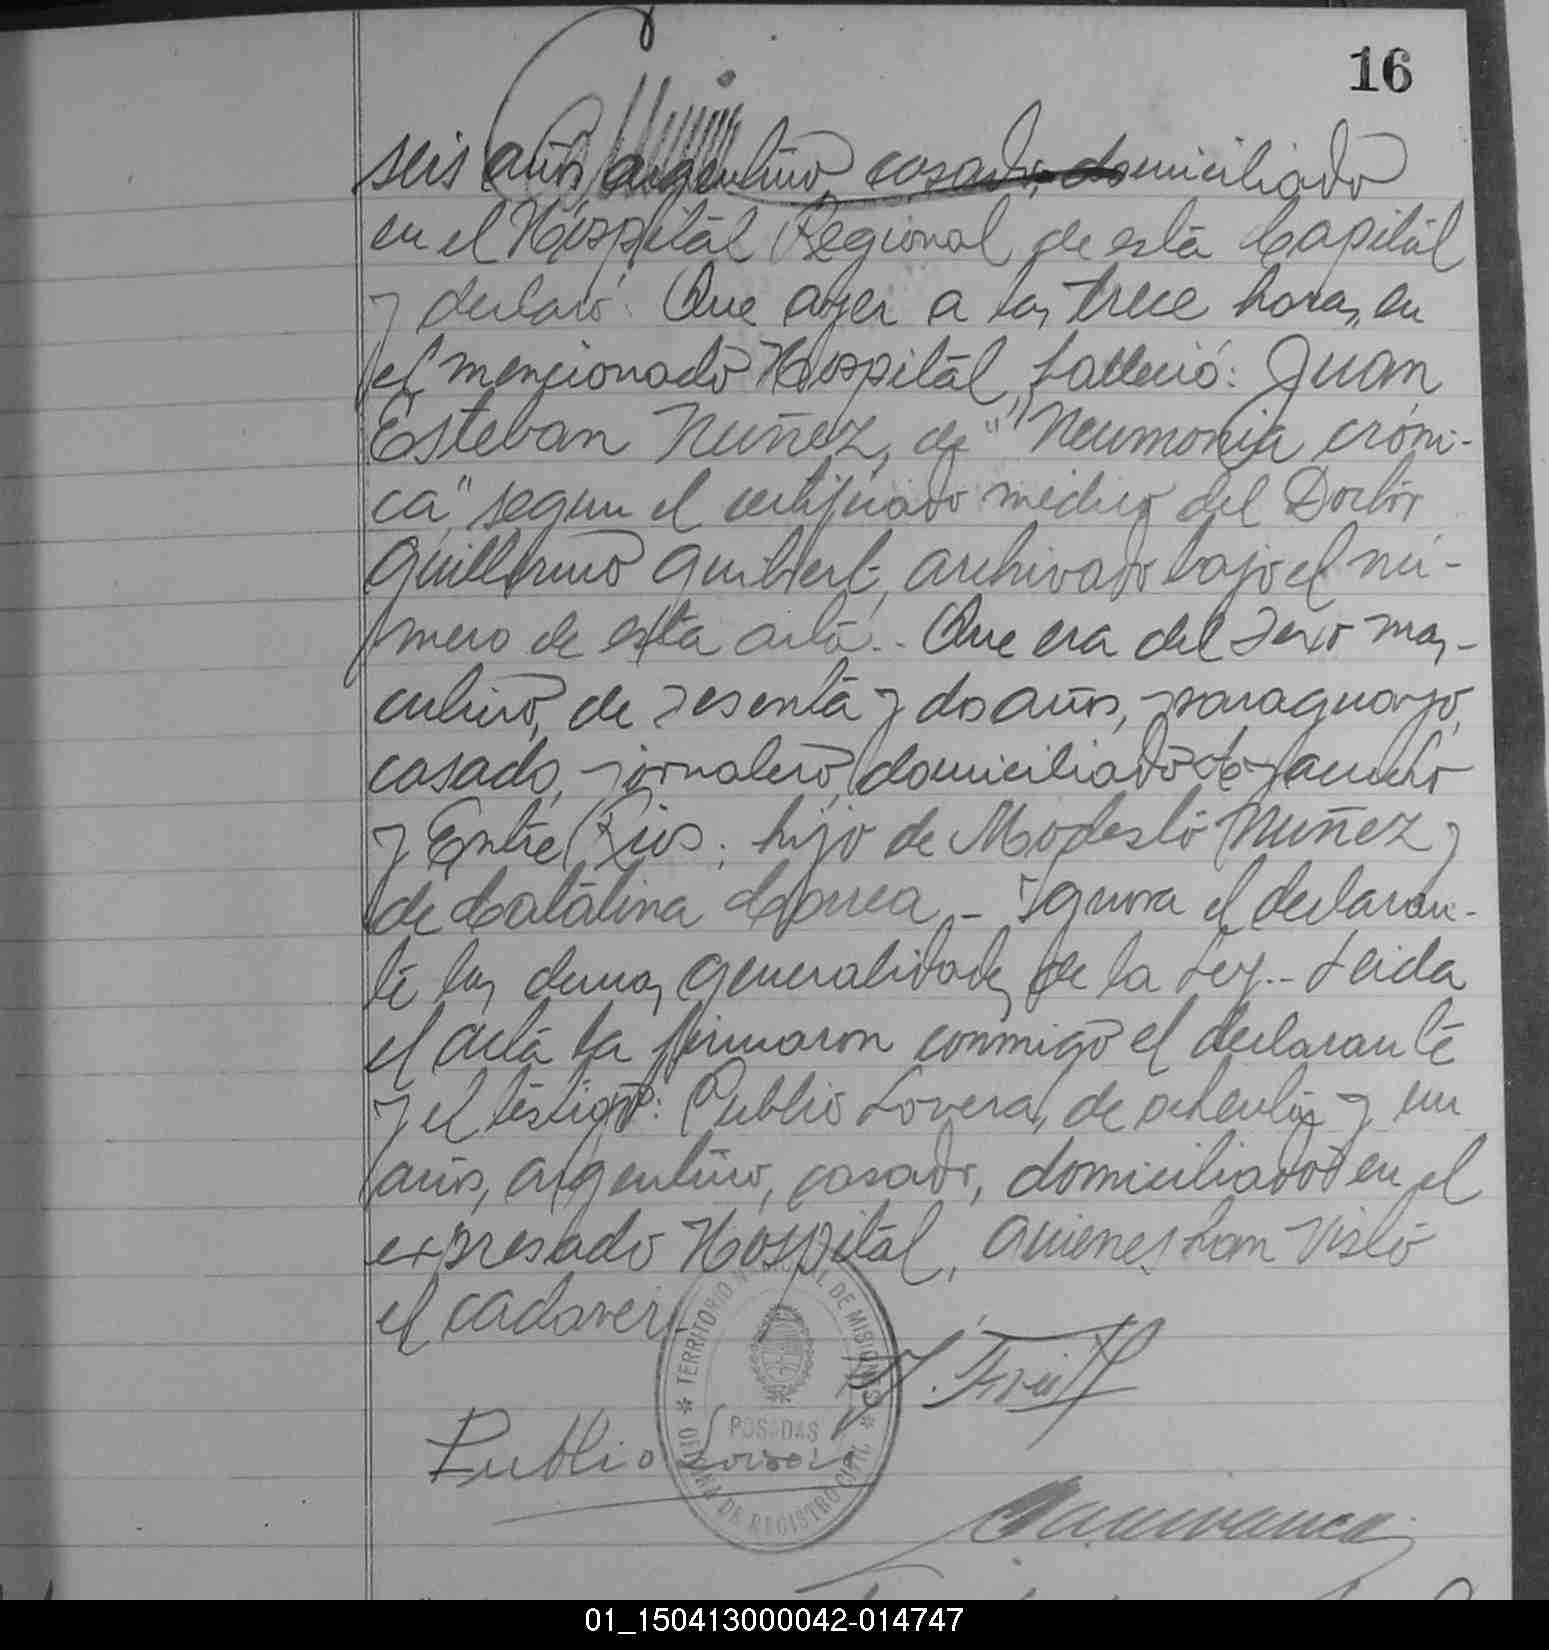 16
seis años, argentino, casado, domiciliado
en el Hospital Regional de esta Capital
y declaró: Que ayer a las trece horas, en
el mencionado Hospital, falleció: Juan
Esteban Nuñez, de "Neumonia cróni-
ca", segun el certificado médico del Doctor
Guillermo Guibert, archivado bajo el nú-
mero de esta acta.. Que era del sexo mas-
culino, de sesenta y dos años, paraguayo,
casado, jornalero, domiciliado Ayacucho
y Entre Rios; hijo de Modesto Nuñez y
de Catalina Correa. - Ignora el declaran-
te las demas generalidades de la Ley.. Leida
el acta la firmaron conmigo el declarante
y el testigo: Publio Lovera, de ochenta y un
años, argentino, casado, domiciliado en el
expresado Hospital, quienes han visto
el cadaver.
TERRITORIO NACIONAL DE MISIONES
POSADAS
OFICINA DE REGISTRO CIVIL
Publio Lovera
01_150413000042-014747